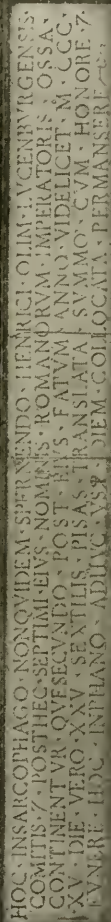 HOC · INSARCOPHAGO · NONQVIDEM · SPERNENDO · HENRICI OLIM · LVCENBVRGENSIS
COMITIS · 7 · POSTHEC · SEPTIMI · EIVS · NOMINIS · ROMANORVM · IMPERATORIS · OSSA ·
CONTINENTVR · QVESECVNDO · POST · EIVS · FATVM · ANNO · VIDELICET · M · CCC ·
XV · DIE · VERO · XXV · SEXTILIS · PISAS · TRANSLATA · SVMMO · CVM · HONORE · 7 ·
FVNERE · HOC · INPHANO · ADHVC · VSQ · DIEM · COLLOCATA · PERMANSERE